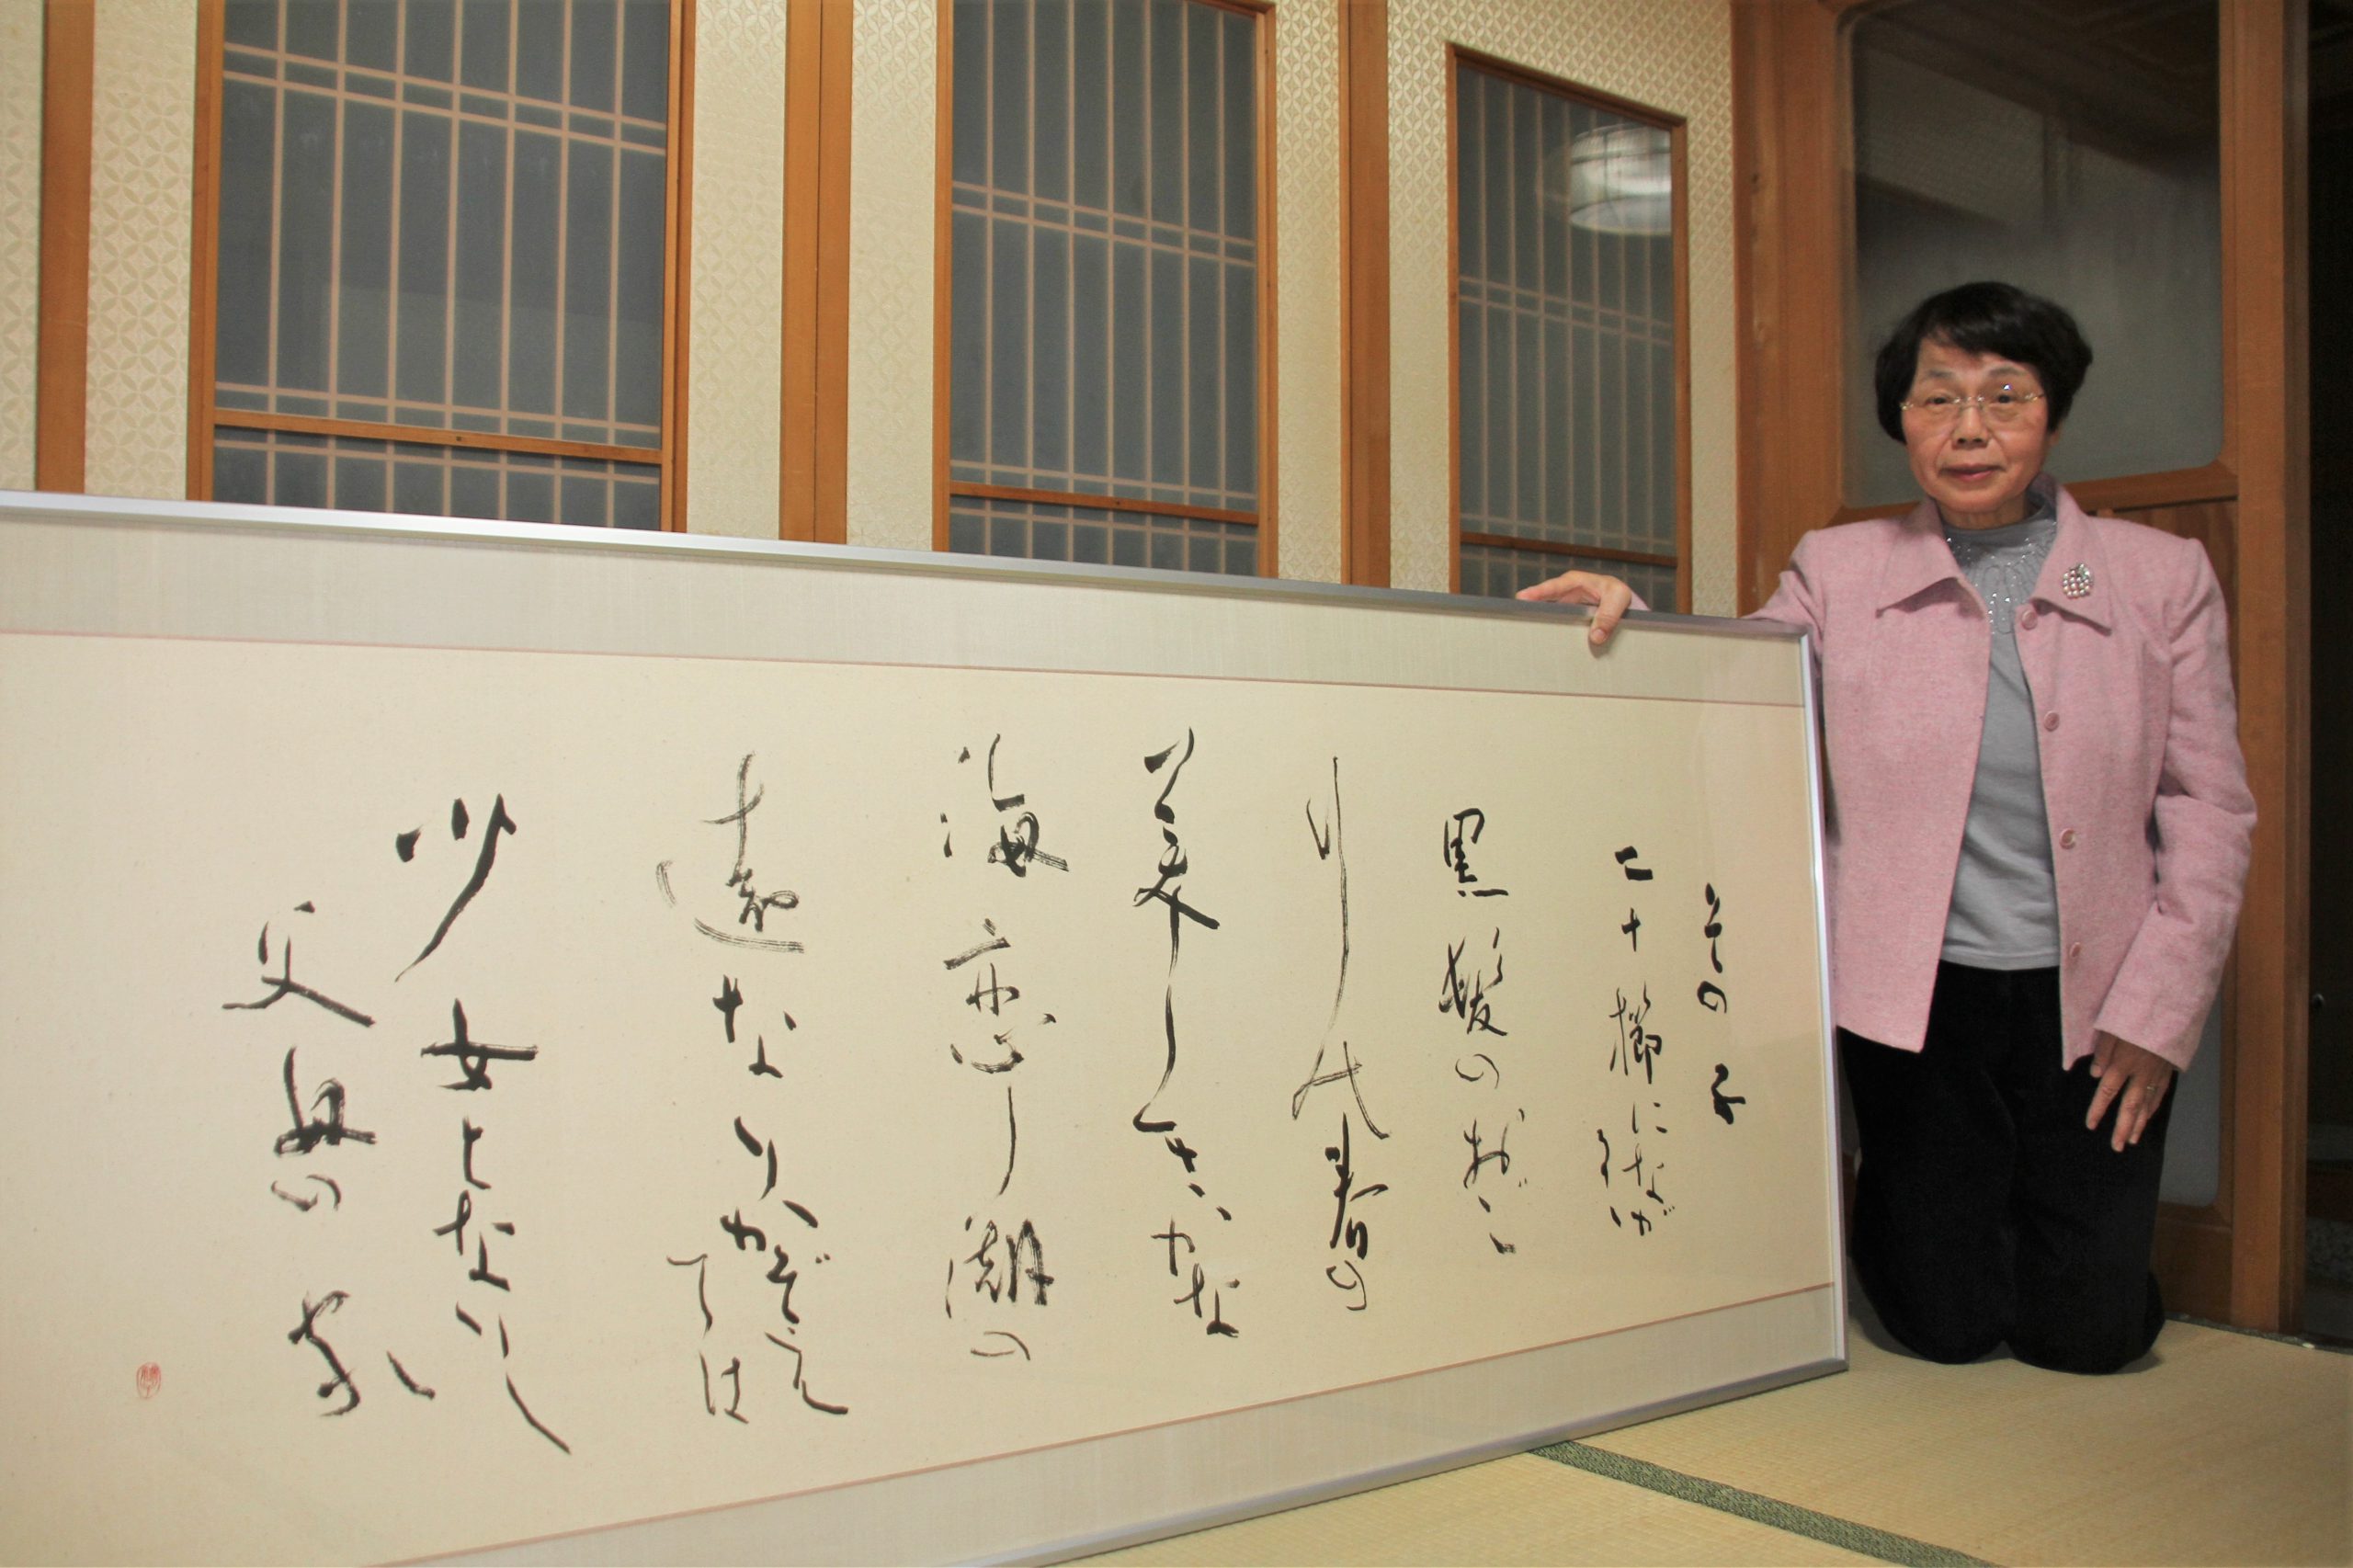 その子
二十櫛にながるゝ
黒髪のおご
りの春の
美しきかな
海恋し潮の
遠なりかぞへては
少女となりし
父母の家